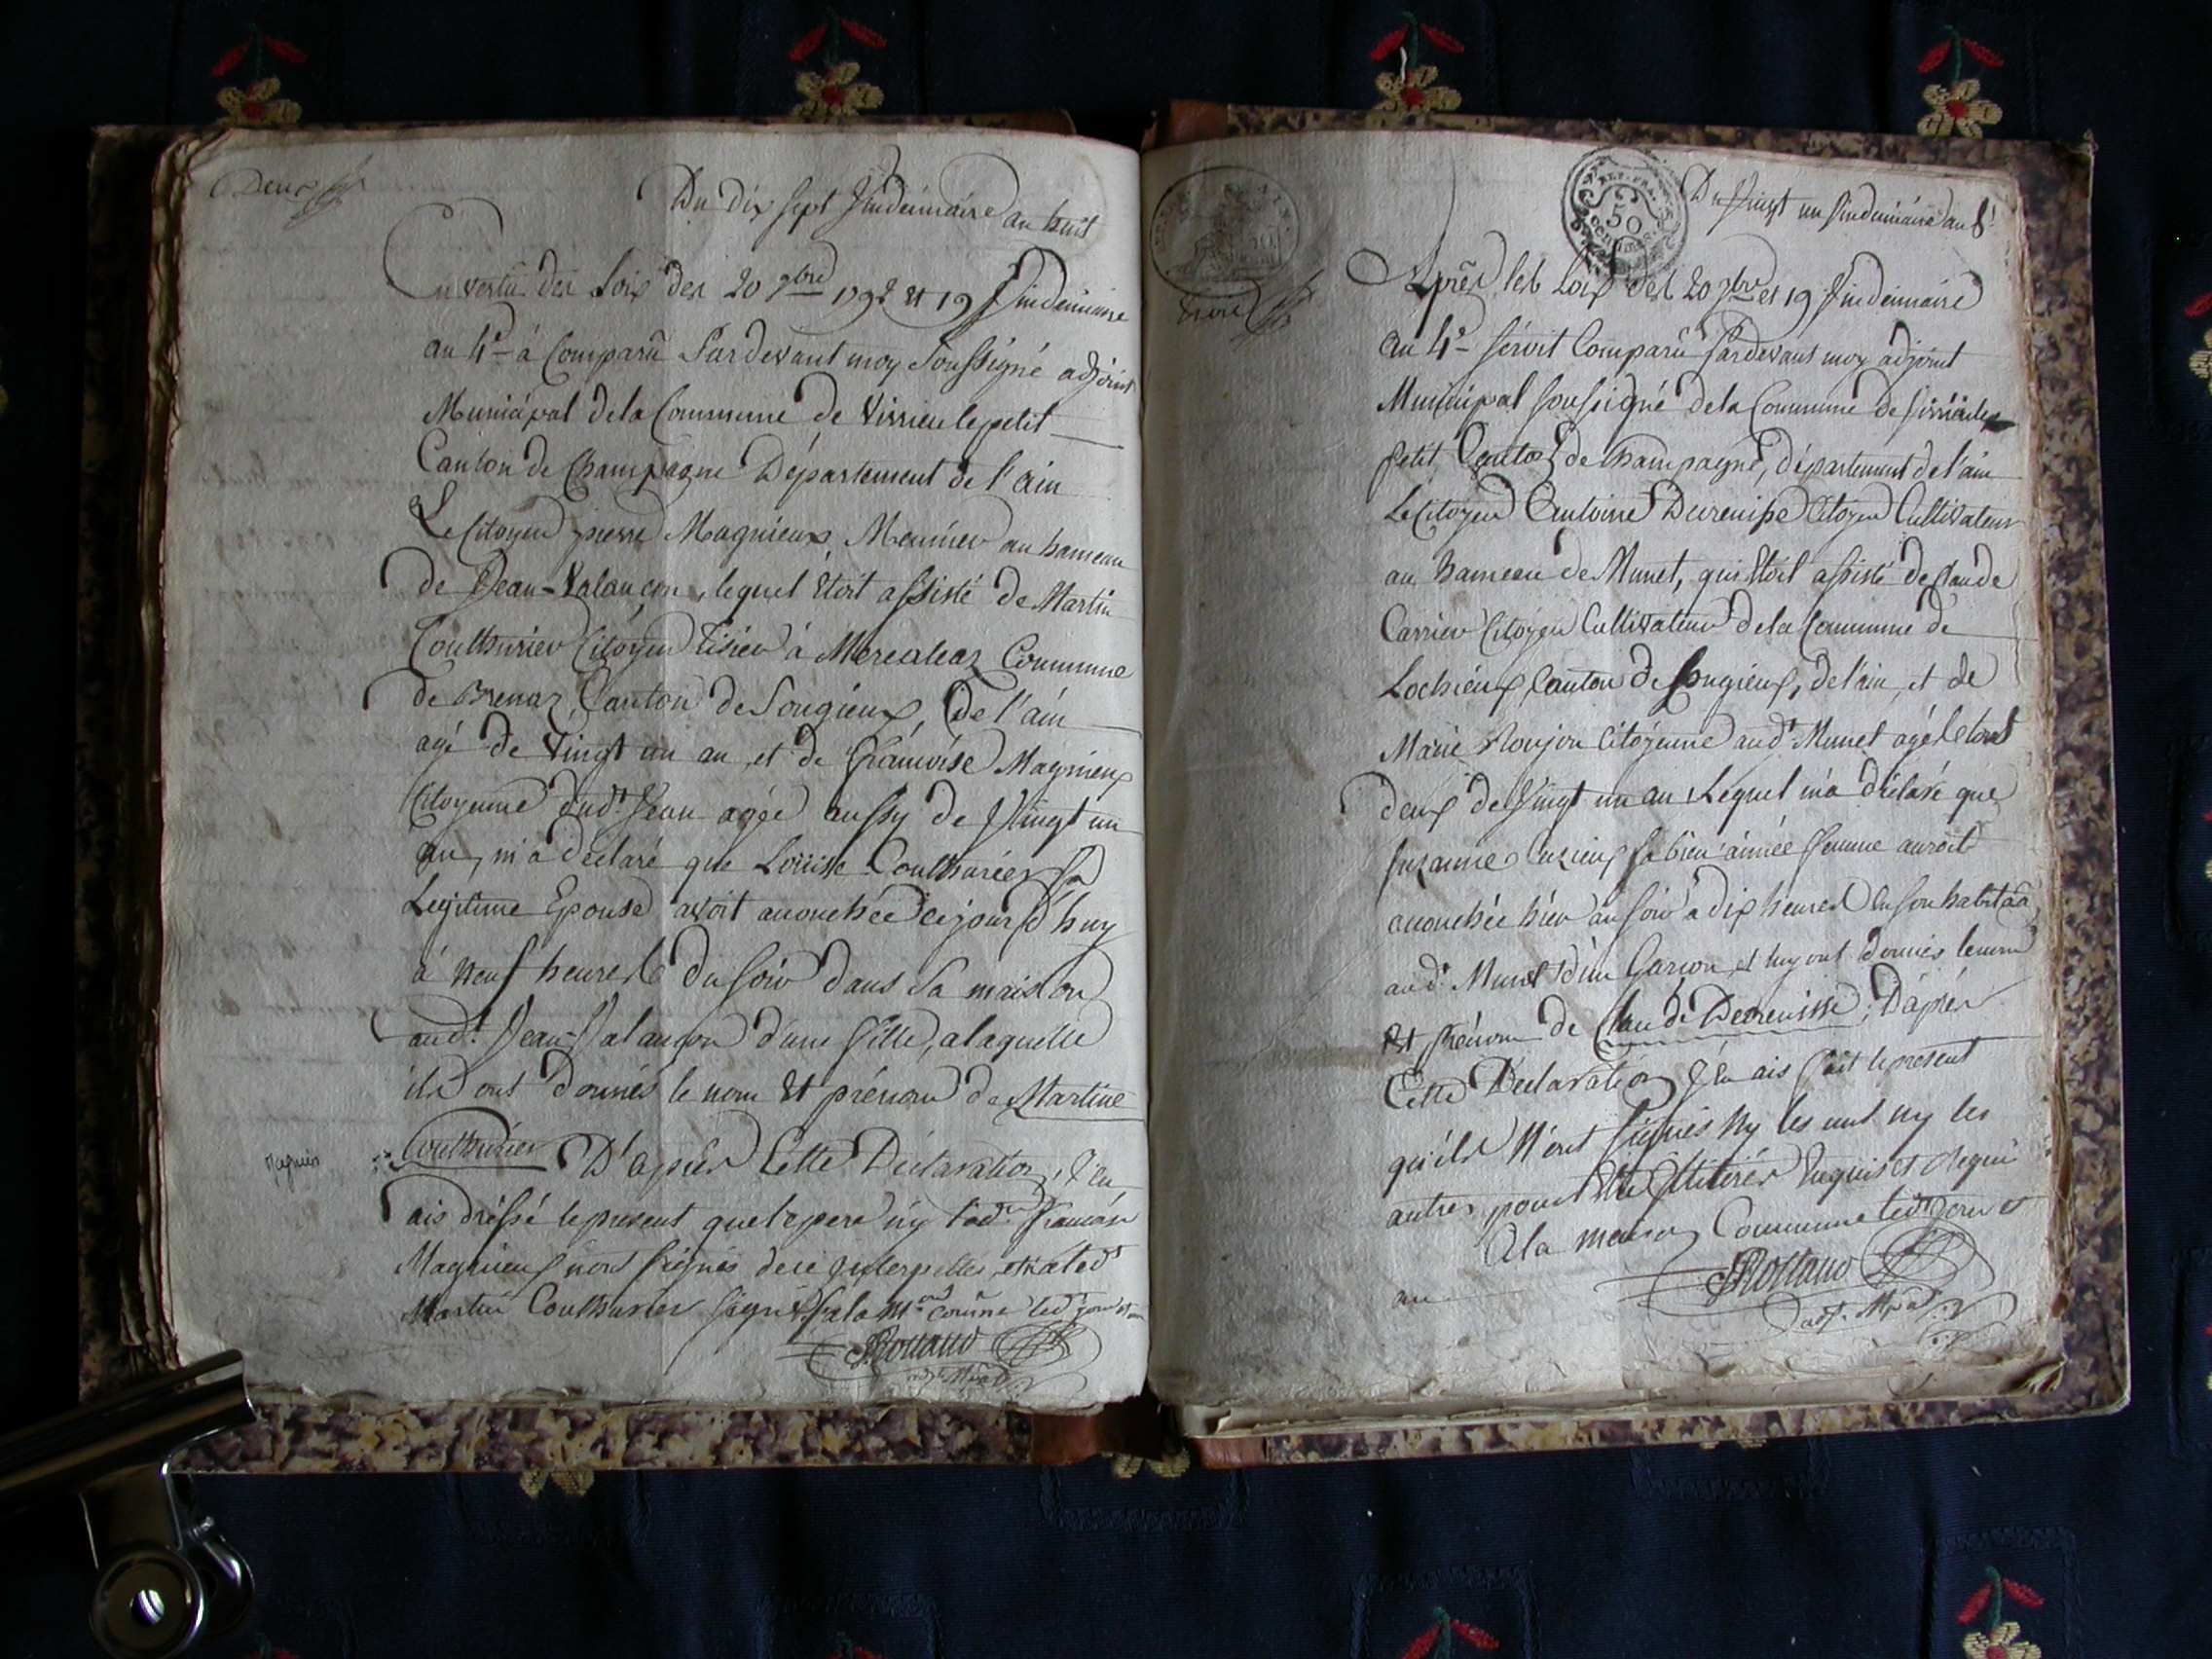 Deux
Du dix sept Vindemiaire an huit
En vertu des Loix des 20 7bre 1792 et 19 Vindemiaire
an 4e à Comparû Pardevant moy Soussigné adjoint
Municipal de la Commune de Virrieu le petit
Canton de Champagne Département de l'ain
Le Citoyen pierre Magnieux Meunier au hameau
de Jean-Valançon, lequel étoit assisté de Martin
Couthurier Citoyen tisier à Commune
de Brenaz, Canton de Songieux, de l'ain
agé de vingt un an, et de françoise Magnieux
Citoyenne dudt Jean agée aussy de Vingt un
an, m'a déclaré que Louise Couthurier sa
Légitime Epouse avoit accouchée ce jourd'huy
à neuf heures du soir dans sa maison
audt Jean-Valançon d'une fille, a laquelle
ils ont donnés le nom et prénom de Martine
Couthurier D'après Cette Déclaration, J'en
magnieu
ais dréssé le présent que le pere n'y ladte francoise
Magnieux n'ont signés de ce interpellés, et ledt
Martin Couthurier signé, à la mon comûne ledt jour et an
Rolland
adjt Mpal
REP. FRA.
50
centimes
Du Vingt un Vindemiaire an 8e
trois
Après les Loix des 20 7bre et 19 Vindemiaire
an 4e séroit Comparû Pardevant moy adjoint
Municipal soussigné de la Commune de Virrieu le
petit Canton de Champagne, département de l'ain
Le Citoyen Antoine Citoyen Cultivateur
au hameau de Munet, qui étoit assisté de Claude
Carrier Citoyen Cultivateur de la Commune de
Lochieux Canton de Songieux, de l'ain, et de
Marie Roujon Citoyenne audt Munet agés tous
deux de Vingt un an, Lequel m'a déclaré que
Suzanne sa bien aimée femme auroit
accouchée hier au soir à dix heures en son habitaôn
audt Munet d'un Garçon, et luy ont donnés le nom
et prénom de Claude Dereuisse; D'après
Cette Déclaration J'en ais fait le présent
qu'ils N'ont signés Ny les uns ny les
autres pour être illitérés Enquis et Requis
A la maison Commune ledt jour et
an
Rolland
adjt Mpal